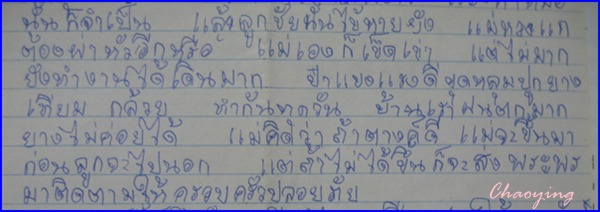 นั้นก็จำเป็น แล้วลูกชัยนั้นไข้หายยัง แม่หวงแก
ต้องผ่าหัวอีกหรือ แม่เองก็เข็ดเขา แต่ไม่มาก
ยังทำงานได้เดินมาก ป้าแบงแรงดี ขุดหลุมปลูกยาง
เทียม กล้วย ทำกันทุกวัน บ้านเราฝนตกมาก
ยางไม่ค่อยได้ แม่คิดว่าถ้าตางค์ดี แม่จะขึ้นมา
ก่อนลูกจะไปนอก แต่ถ้าไม่ได้ขึ้นก็จะส่งพระพร
มาติดตามให้ครอบครัวปลอดภัย
Chaoying